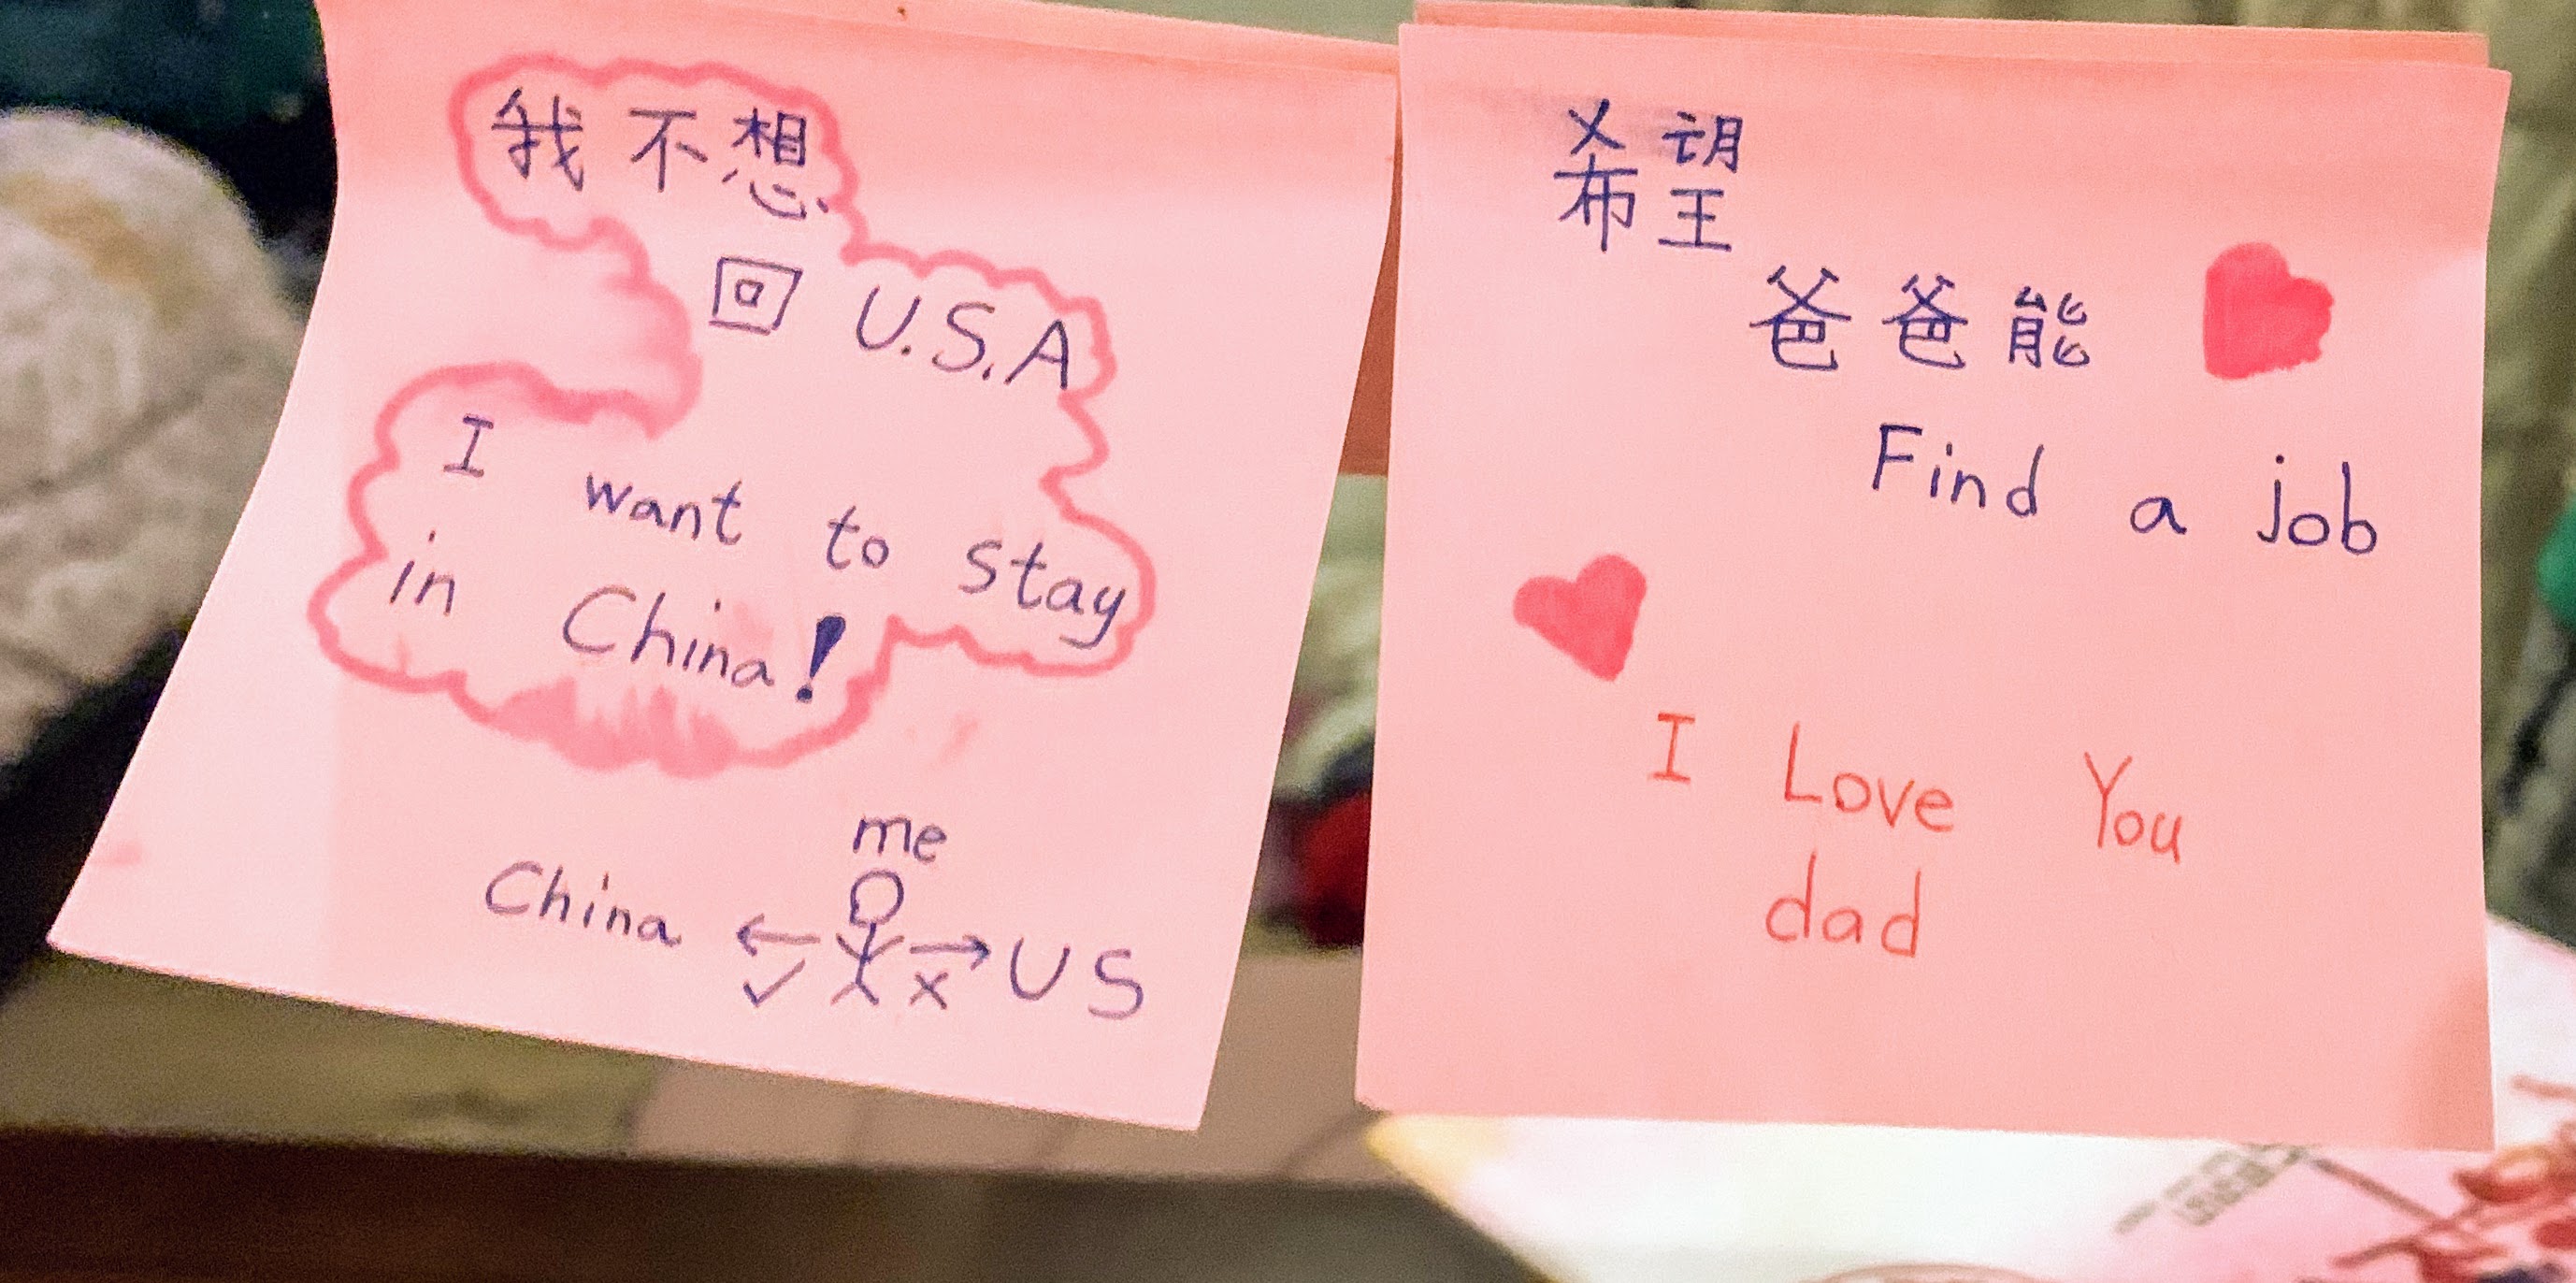 我不想
回 U.S.A
I want to stay
in China!
me
China ← → US
✓ x
希望
爸爸能
Find a job
I Love You
dad